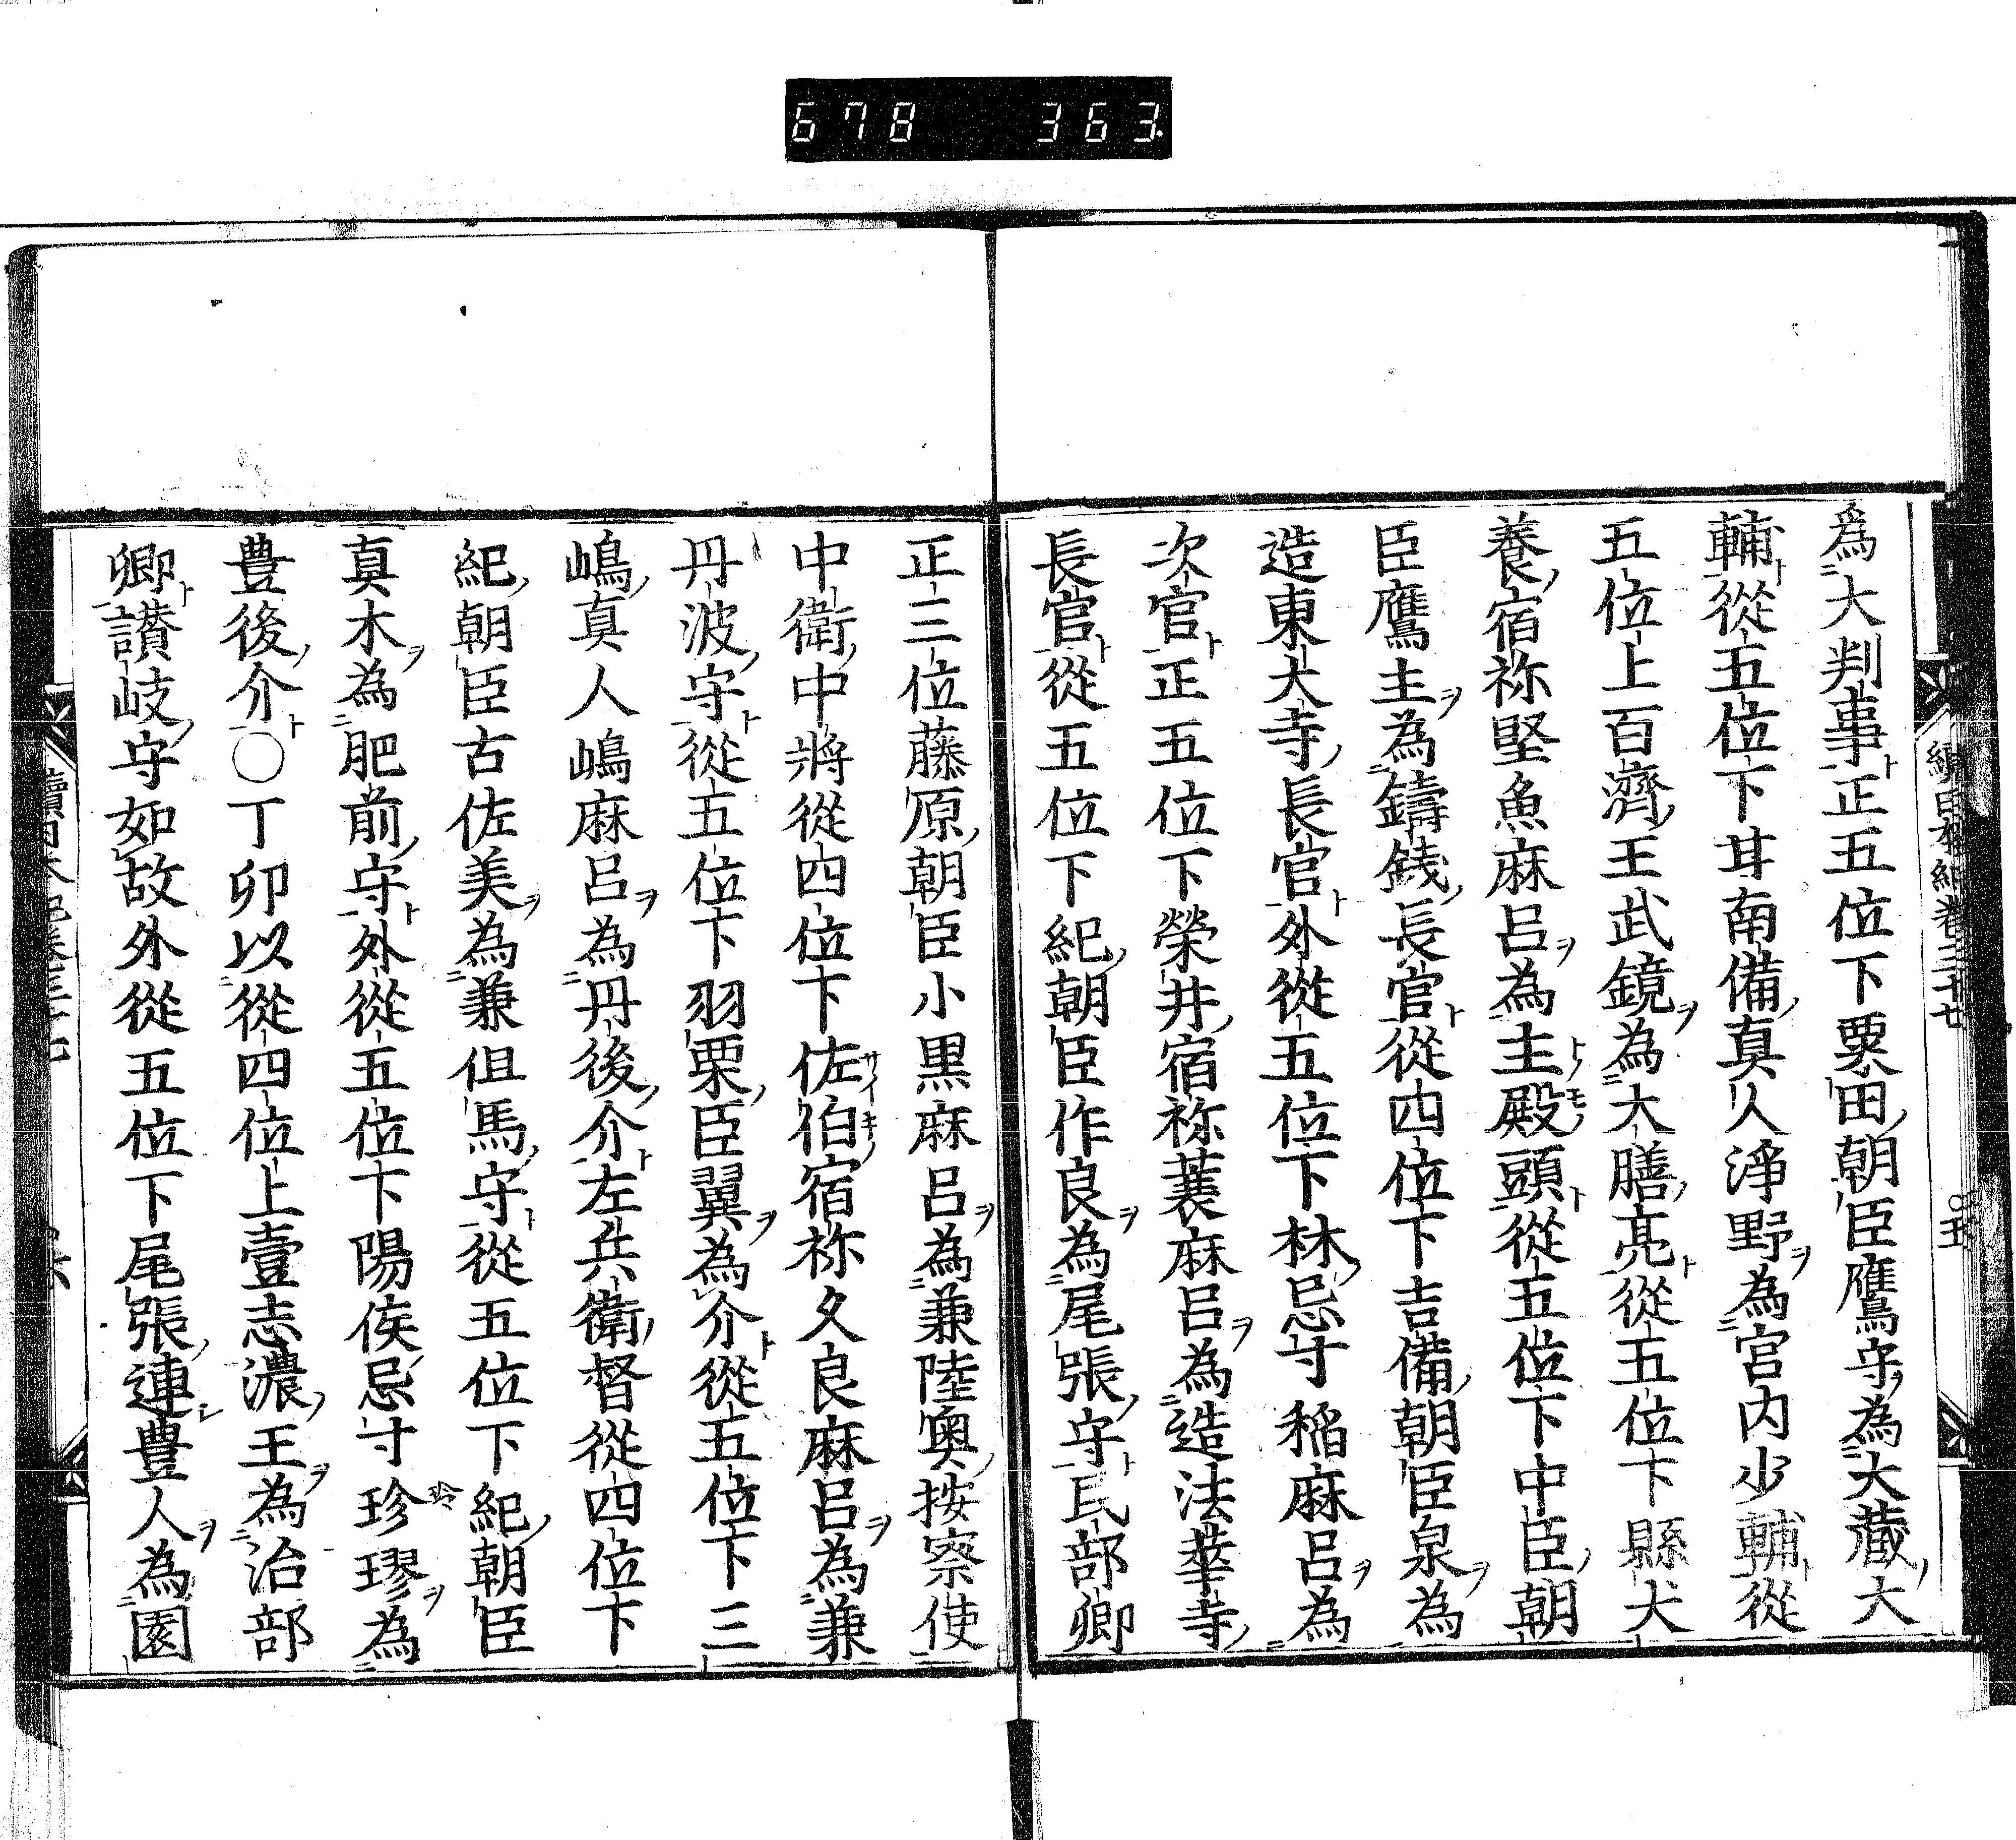 678 363
續日本紀卷三十七
五
爲大判事正五位下粟田朝臣鷹守爲大藏大
輔從五位下甘南備真人淨野爲宮内少輔從
五位上百濟王武鏡爲大膳亮從五位下縣犬
養宿祢堅魚麻呂爲主殿頭從五位下中臣朝
臣鷹主爲鑄錢長官從四位下吉備朝臣泉爲
造東大寺長官外從五位下林忌寸稲麻呂爲
次官正五位下榮井宿祢蓑麻呂爲造法華寺
長官從五位下紀朝臣作良爲尾張守民部卿
正三位藤原朝臣小黒麻呂爲兼陸奥按察使
中衛中將從四位下佐伯宿祢久良麻呂爲兼
丹波守從五位下羽栗臣翼爲介從五位下三
嶋真人嶋麻呂爲丹後介左兵衛督從四位下
紀朝臣古佐美爲兼但馬守從五位下紀朝臣
真木爲肥前守外從五位下陽侯忌寸珍璆爲
豊後介〇丁卯以從四位上壹志濃王爲治部
卿讃岐守如故外從五位下尾張連豊人爲園